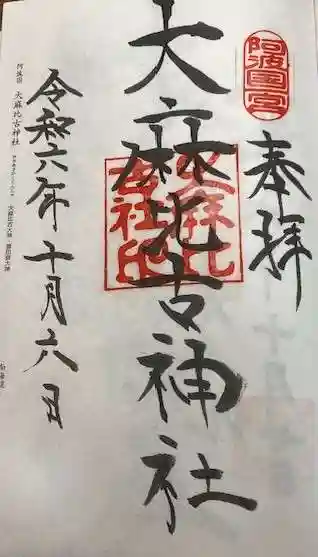 阿波国一宮
奉拝
大麻比古神社
大麻比古社印
令和六年十月六日
阿波国 大麻比古神社
大麻比古大神・猿田彦大神